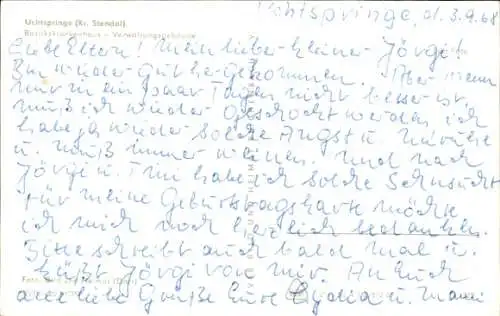 Uchtspringe (Kr. Stendal)
Bezirkskrankenhaus – Verwaltungsgebäude
Uchtspringe, d. 3.9.68
Liebe Eltern! Mein lieber kleiner Jörgi!
Bin wieder gut her gekommen. Aber wenn
mir in ein paar Tagen nicht besser ist,
muß ich wieder geschockt werden ich
habe ja wieder solche Angst u. Unruhe
u. muß immer weinen. Und nach
Jörgi u. habe ich solche Sehnsucht
Für meine Geburtstagskarte möchte
ich mich noch herzlich bedanken.
Bitte schreibt auch bald mal u.
küßt Jörgi von mir. An Euch
alle liebe Grüße Eure Lydia u. Mami
Foto: